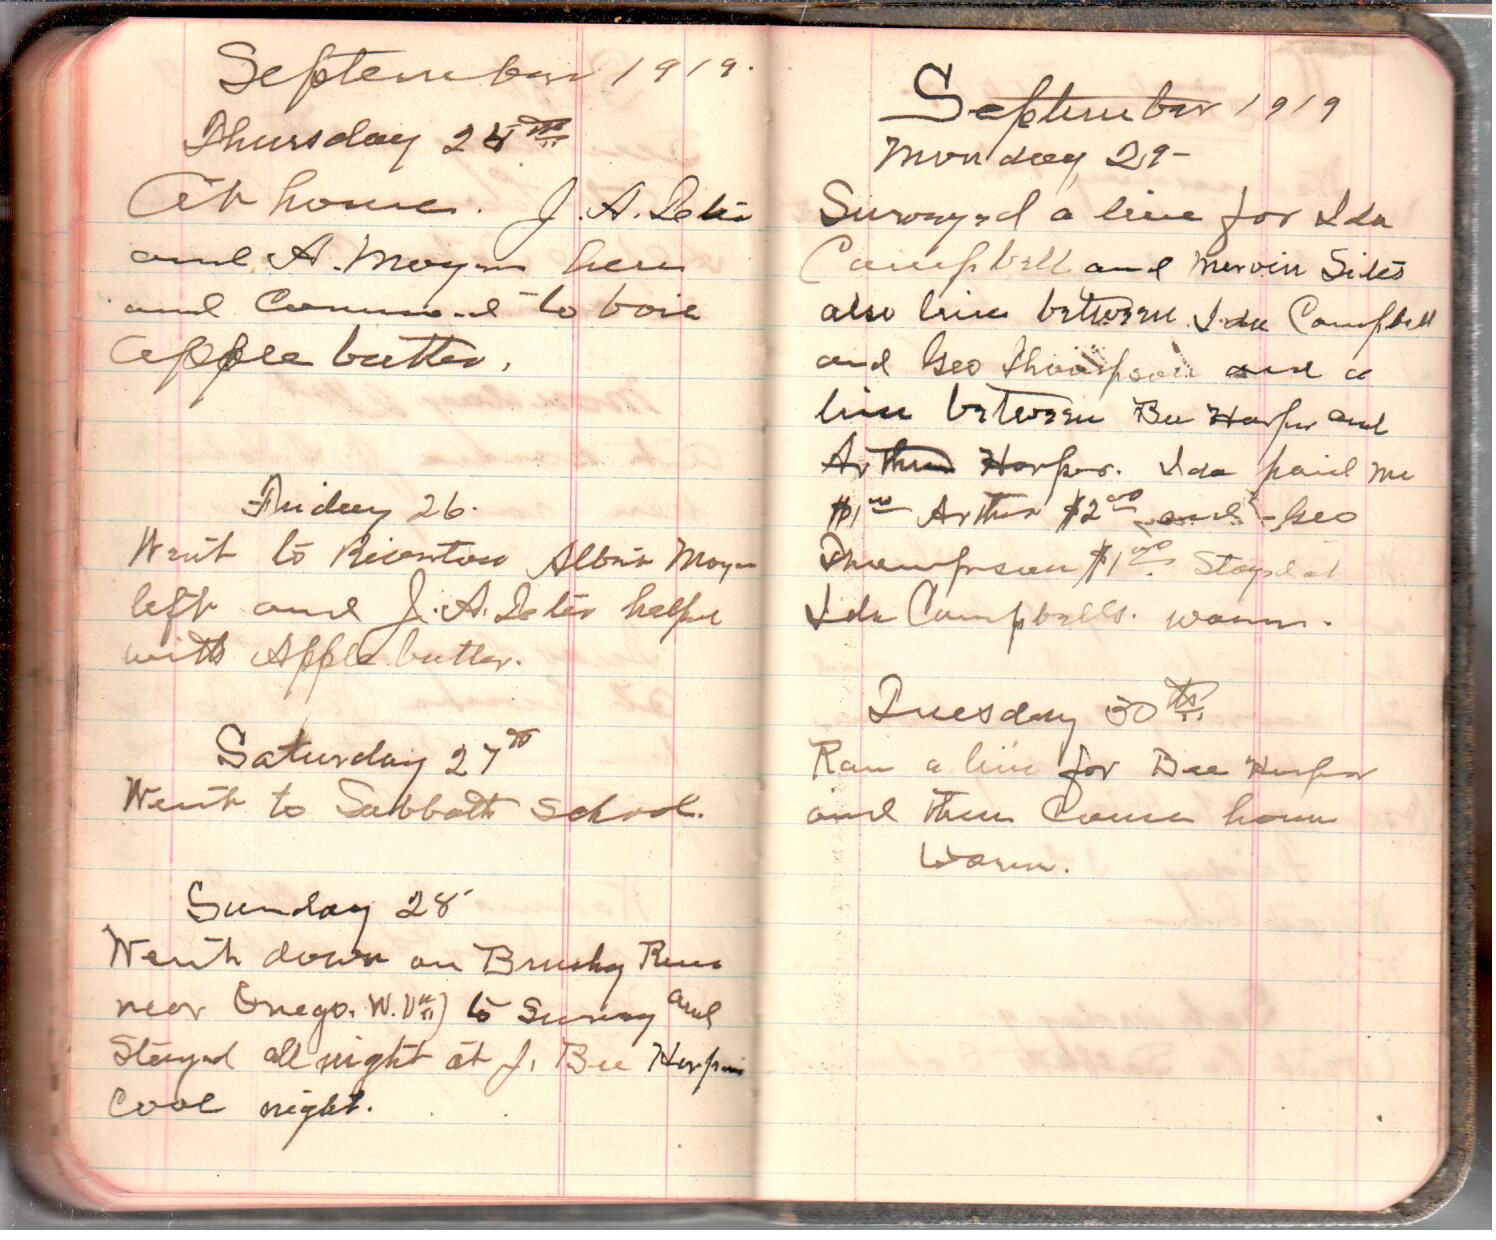 September 1919.
Thursday 25th
At home. J. A. Teter
and A. Moyer here
and Commenced to boil
apple butter.
Friday 26.
Went to Riverton Albert Moyer
left and J. A. Teter helped
with Apple butter.
Saturday 27th
Went to Sabbath School.
Sunday 28
Went down on Brushy Run
near Onego, W. Va.) to Survey and
Stayed all night at J. Bee Harpers
Cool night.
September 1919
Monday 29-
Surveyed a line for Ida
Campbell and Mervin Sites
also line between Ida Campbell
and Geo Thompson and a
line between Bee Harper and
Arthur Harper. Ida paid me
$1.00 Arthur $2.00 and Geo
Thompson $1.00. Stayed at
Ida Campbells. warm.
Tuesday 30th
Ran a line for Bee Harper
and then Came home
Warm.